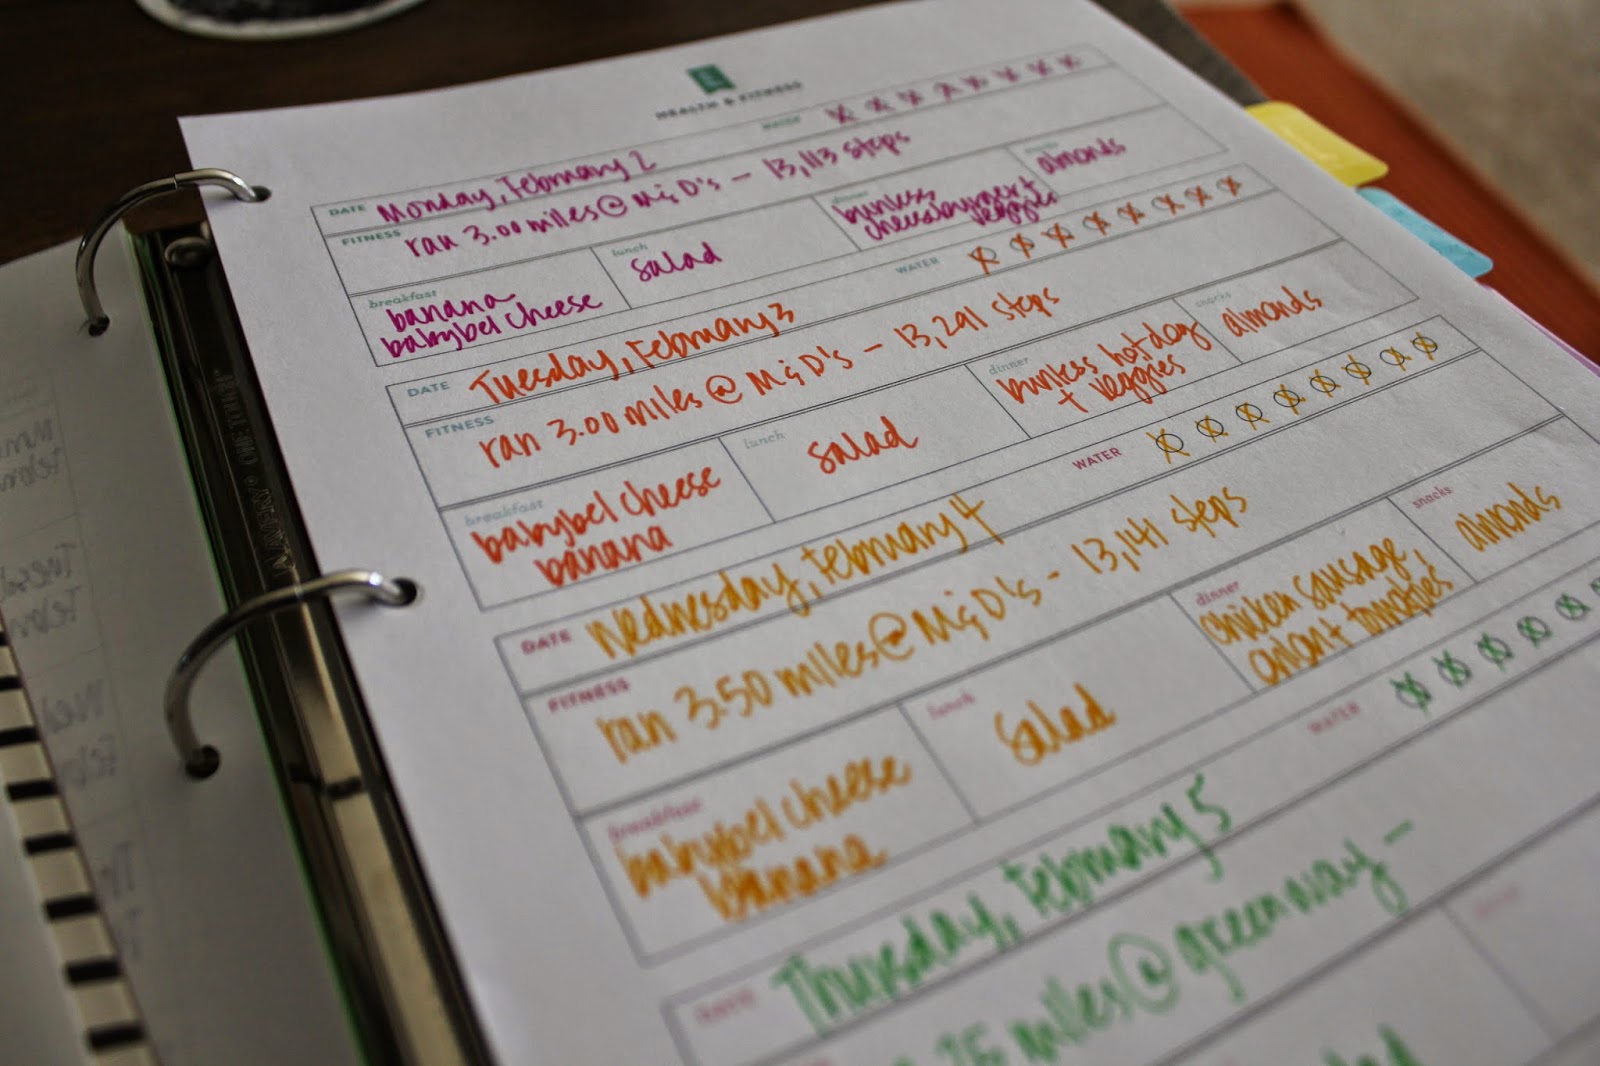 HEALTH & FITNESS
WATER
DATE Monday, February 2
FITNESS ran 3.00 miles @ M & D's – 13,113 steps
breakfast
banana
babybel cheese
lunch
salad
bunless
cheeseburger +
veggies
almonds
WATER
DATE Tuesday, February 3
FITNESS ran 3.00 miles @ M & D's – 13,291 steps
breakfast
babybel cheese
banana
lunch
salad
dinner
bunless hotdog
+ veggies
snacks
almonds
WATER
DATE Wednesday, February 4
FITNESS ran 3.50 miles @ M & D's - 13,141 steps
breakfast
babybel cheese
banana
lunch
salad
dinner
chicken sausage,
snacks
almonds
WATER
DATE Thursday, February 5
miles @ greenway –